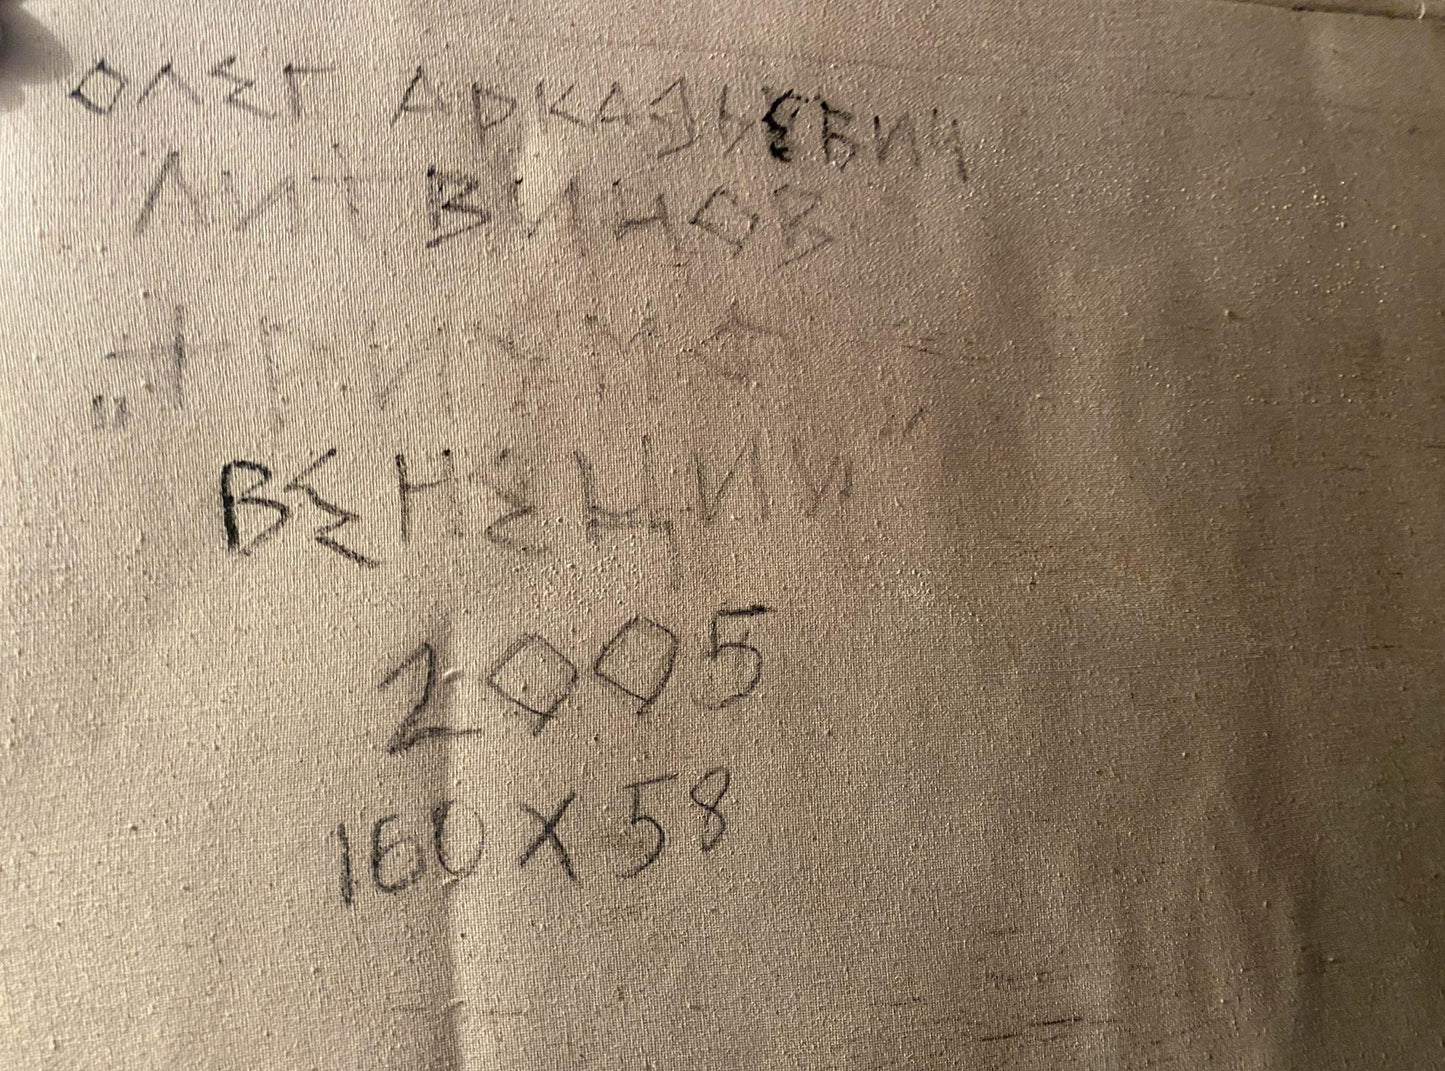 ОЛЕГ АРКАДЬЕВИЧ
ЛИТВИНОВ
ВЕНЕЦИИ"
2005
160 X 58